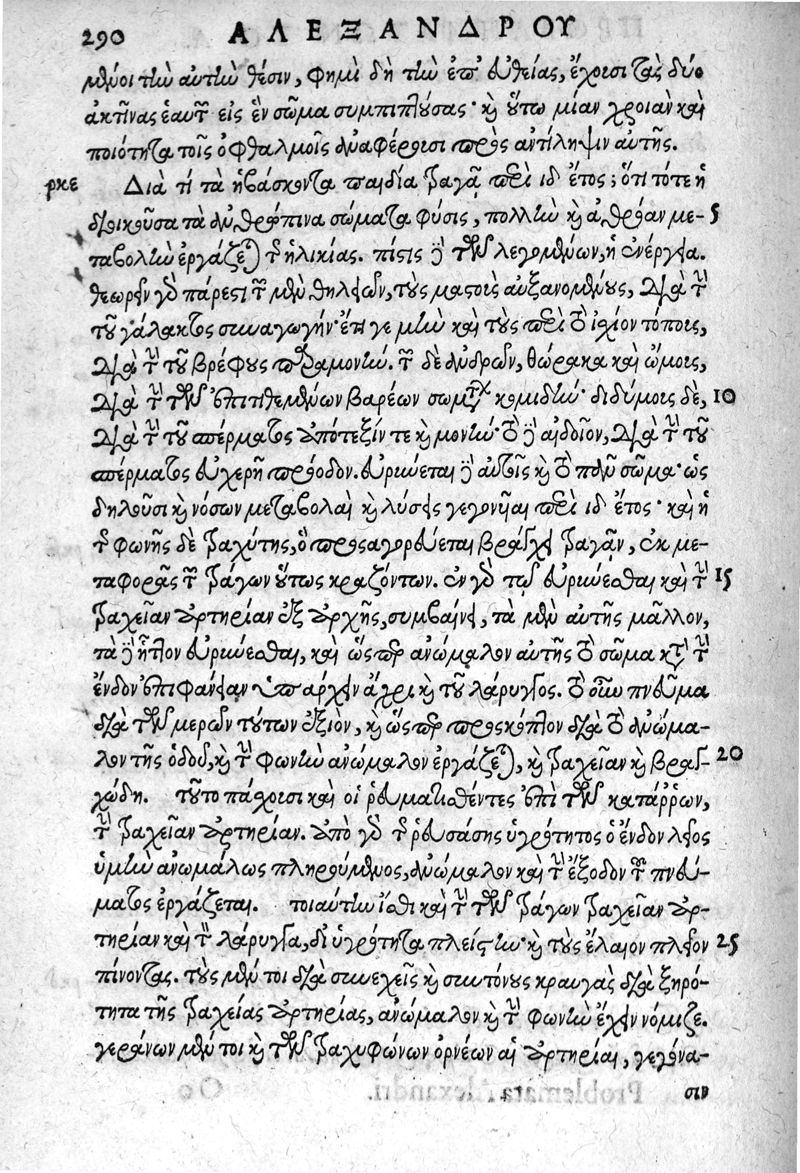 290 ΑΛΕΞΑΝΔΡΟΥ
μένοι τὴν αὐτὴν θέσιν, φημὶ δὴ τὴν ἐπ' εὐθείας, ἔχουσι τὰς δύο
ἀκτῖνας ἑαυτῶν εἰς ἓν σῶμα συμπιπτούσας· καὶ οὕτω μίαν χροιὰν καὶ
ποιότητα τοῖς ὀφθαλμοῖς ἀναφέρουσι πρὸς ἀντίληψιν αὐτῆς.
ρκε Διὰ τί τὰ ἡβάσκοντα παιδία τραγᾷ περὶ ιδ ἔτος; ὅτι τότε ἡ
διοικοῦσα τὰ ἀνθρώπινα σώματα φύσις, πολλὴν καὶ ἀθρόαν με- 5
ταβολὴν ἐργάζεται τῆς ἡλικίας. πίστις δὲ τῶν λεγομένων, ἡ ἐνέργεια.
θεωρεῖν γὰρ πάρεστι τῶν μὲν θηλειῶν, τοὺς μαστοὺς αὐξανομένους, διὰ τὴν
τοῦ γάλακτος συναγωγήν· ἔτι γε μὴν καὶ τοὺς περὶ τὸ ἰσχίον τόπους,
διὰ τὴν τοῦ βρέφους παραμονήν. τῶν δὲ ἀνδρῶν, θώρακα καὶ ὤμους,
διὰ τὴν τῶν ἐπιτιθεμένων βαρέων σωμάτων κομιδήν· διδύμους δὲ, 10
διὰ τὴν τοῦ σπέρματος ἀπότεξίν τε καὶ μονήν· τὸ δὲ αἰδοῖον, διὰ τὴν τοῦ
σπέρματος εὐχερῆ πρόοδον. εὐρύνεται δὲ αὐτοῖς καὶ τὸ πᾶν σῶμα· ὡς
δηλοῦσι καὶ νόσων μεταβολαὶ καὶ λύσεις γεγονυῖαι περὶ ιδ ἔτος· καὶ ἡ
τῆς φωνῆς δὲ τραχύτης, ὃ προσαγορεύεται βράγχη τραγᾶν, ἐκ με-
ταφορᾶς τῶν τράγων οὕτως κραζόντων. ἐν γὰρ τῷ εὐρύνεσθαι καὶ τὴν 15
τραχεῖαν ἀρτηρίαν ἐξ ἀρχῆς, συμβαίνει, τὰ μὲν αὐτῆς μᾶλλον,
τὰ δὲ ἧττον εὐρύνεσθαι, καὶ ὥσπερ ἀνώμαλον αὐτῆς τὸ σῶμα κατὰ τὴν
ἔνδον ἐπιφάνειαν ὑπάρχειν ἄχρι καὶ τοῦ λάρυγγος. τὸ οὖν πνεῦμα
διὰ τῶν μερῶν τούτων ἐξιὸν, καὶ ὥσπερ προσκόπτον διὰ τὸ ἀνώμα-
λον τῆς ὁδοῦ, καὶ τὴν φωνὴν ἀνώμαλον ἐργάζεται, καὶ τραχεῖαν καὶ βραγ- 20
χώδη. τοῦτο πάσχουσι καὶ οἱ ῥευματισθέντες ἐπὶ τῶν κατάρρων,
τὴν τραχεῖαν ἀρτηρίαν. ἀπὸ γὰρ τῆς ῥευσάσης ὑγρότητος ὁ ἔνδον λεῖος
ὑμὴν ἀνωμάλως πληρούμενος, ἀνώμαλον καὶ τὴν ἔξοδον τοῦ πνεύ-
ματος ἐργάζεται. τοιαύτην ἴσθι καὶ τὴν τῶν τράγων τραχεῖαν ἀρ-
τηρίαν καὶ τὸν λάρυγγα, δι' ὑγρότητα πλείστην· καὶ τοὺς ἔλαιον πλεῖον 25
πίνοντας. τοὺς μέν τοι διὰ συνεχεῖς καὶ συντόνους κραυγὰς διὰ ξηρό-
τητα τῆς τραχείας ἀρτηρίας, ἀνώμαλον καὶ τὴν φωνὴν ἔχειν νόμιζε.
γεράνων μέν τοι καὶ τῶν τραχυφώνων ὀρνέων αἱ ἀρτηρίαι, γεγόνα-
σιν